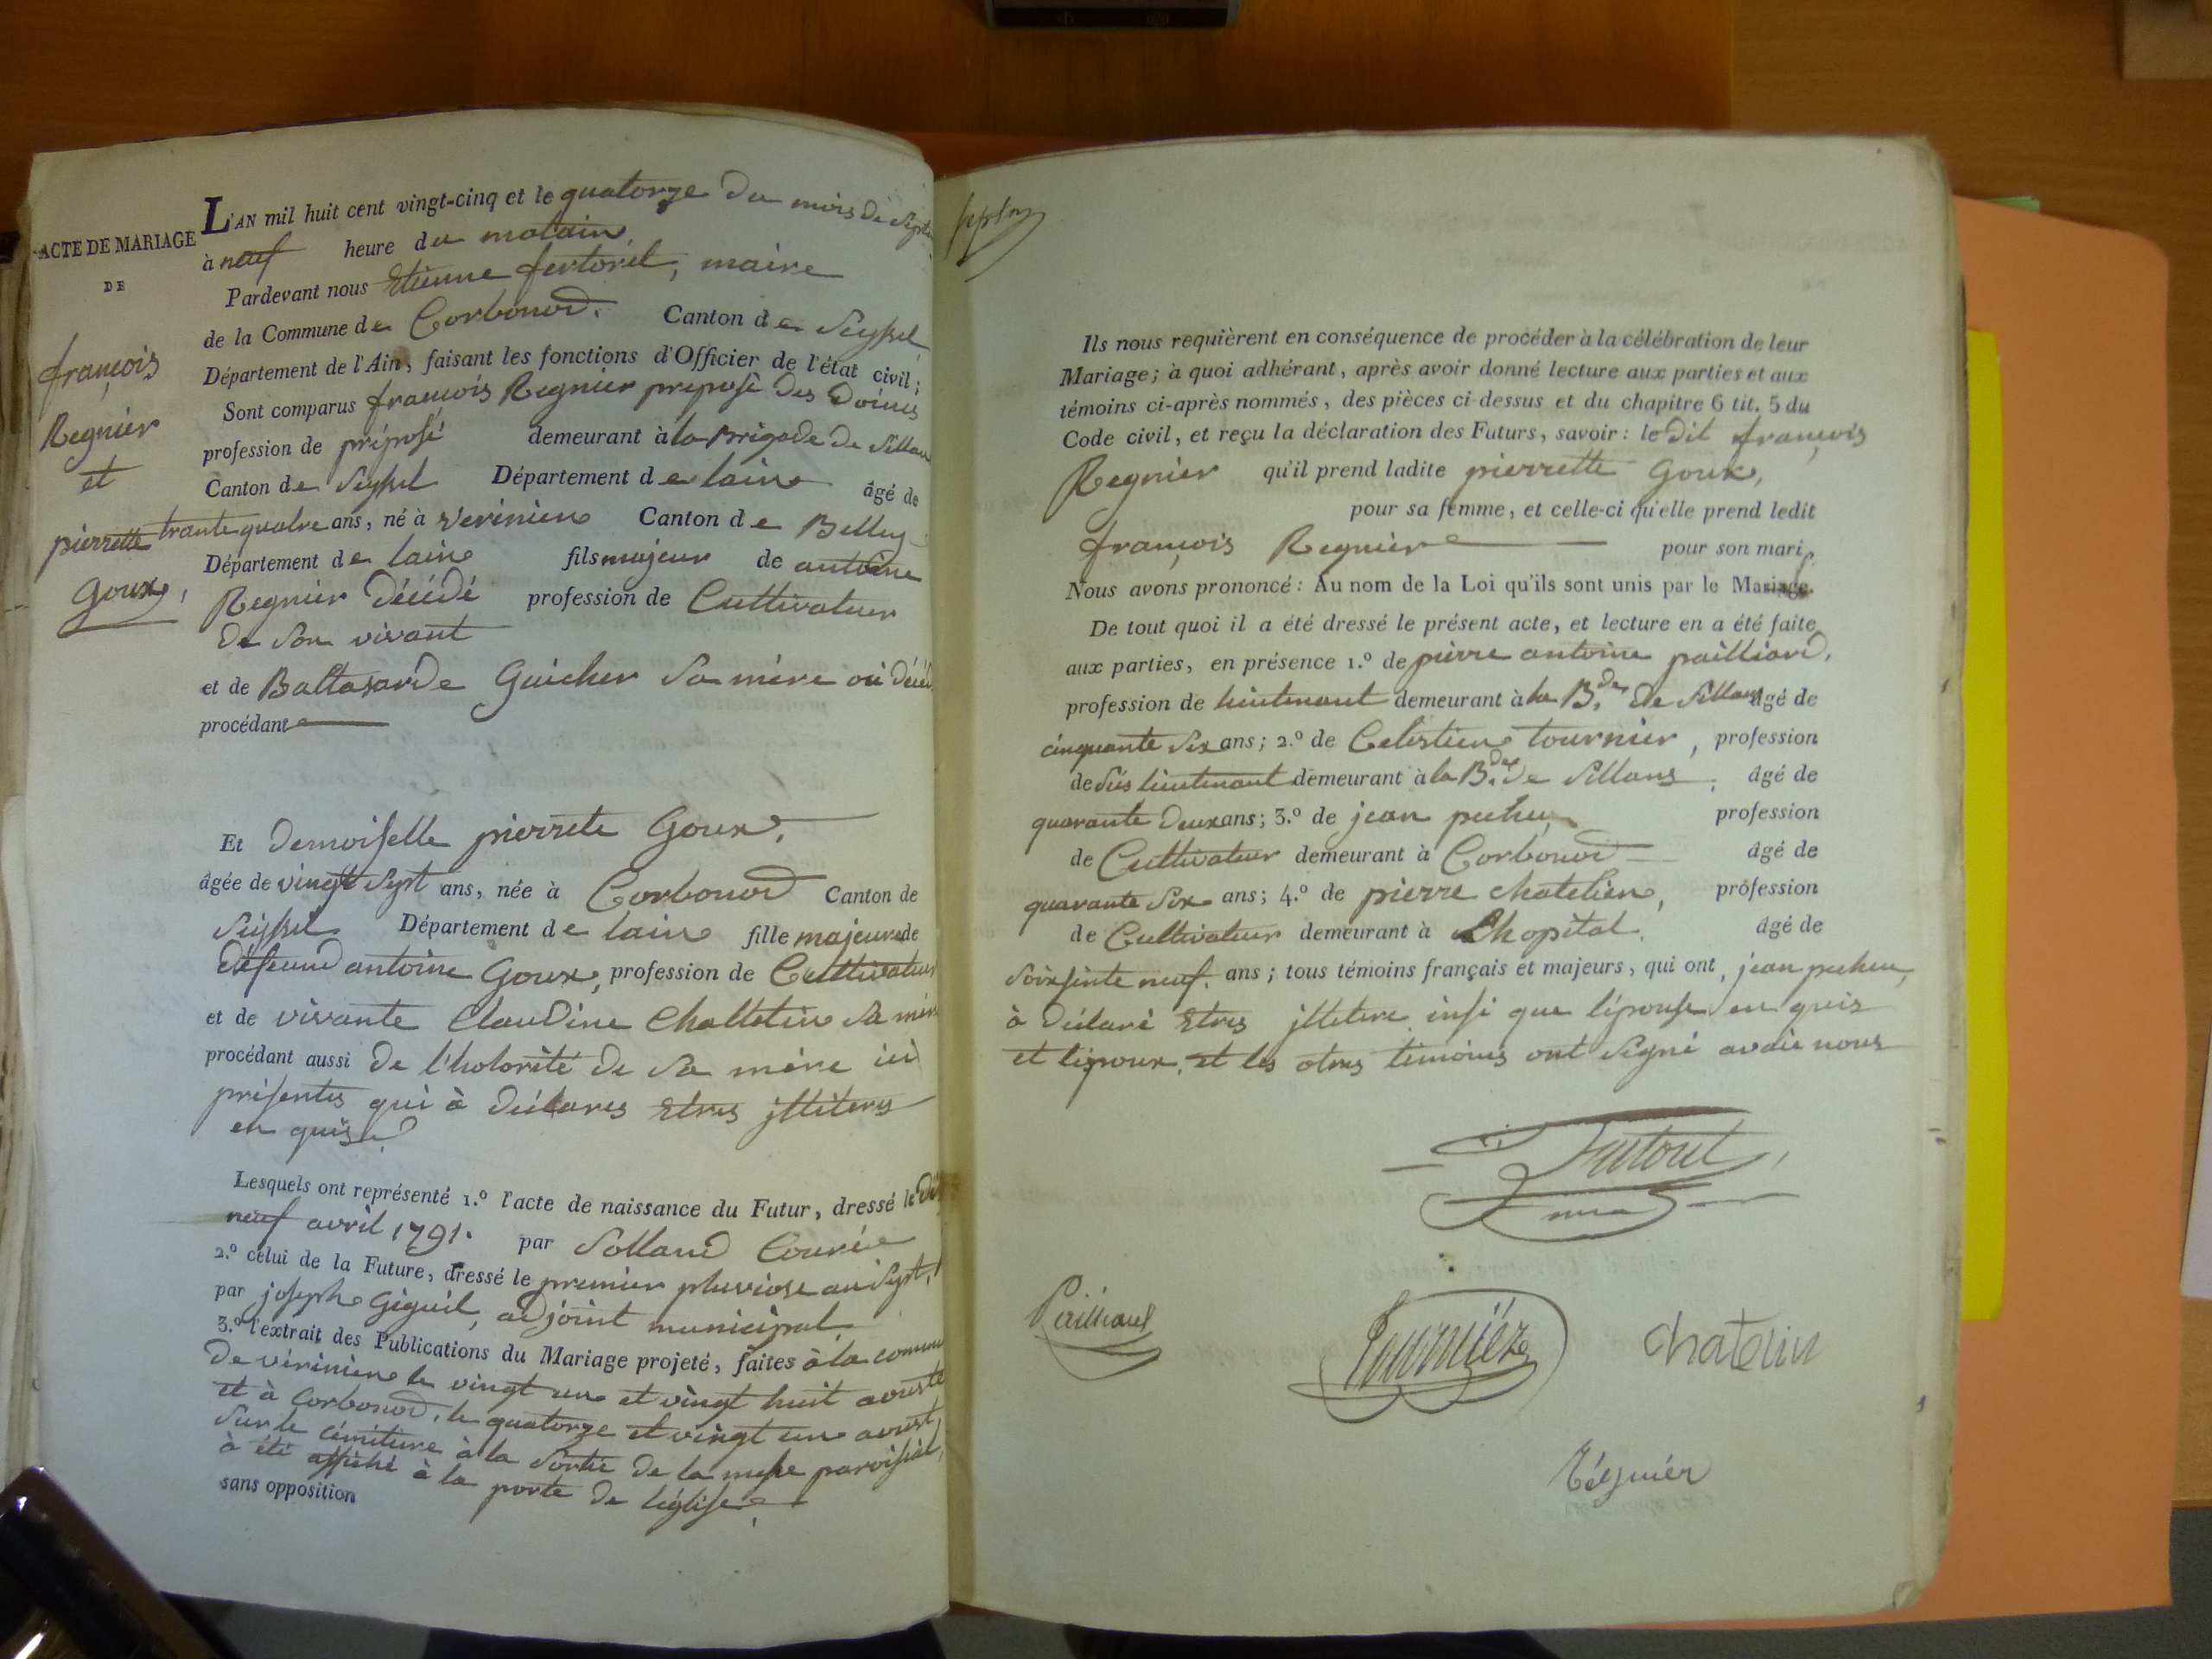 ACTE DE MARIAGE
DE
françois
Regnier
et
pierrette
Goux,
L'AN mil huit cent vingt-cinq et le quatorze du mois de Septe
à neuf heure du matain
Pardevant nous Etienne fertoret, maire
de la Commune de Corbonod. Canton de Seyssel
Département de l'Ain, faisant les fonctions d'Officier de l'état civil;
Sont comparus françois Regnier preposé des Doines
profession de préposé demeurant à la Brigade de Sillan
Canton de Seyssel Département de lain âgé de
trante quatre ans, né à Virinien Canton de Belley
Département de lain fils majeur de antoine
Regnier décédé profession de Cultivateur
de son vivant
et de Baltasarde Guicher Sa mére oci décéd
procédant
Et demoiselle pierrete Goux,
âgée de vingt Sept ans, née à Corbonod Canton de
Seissel Département de lain fille majeure de
défeund antoine Goux, profession de Cultivateur
et de vivante Claudine Chattelin Sa mére
procédant aussi de l'hotorité de Sa mére ici
présentes qui à déclares Etres jlliteres
en quis
Lesquels ont représenté 1.º l'acte de naissance du Futur, dressé le dix
neuf avril 1791. par Solland Courée
2.º celui de la Future, dressé le premier pluviose an Sept,
par joseph Giguil, adjoint municipal
3.º l'extrait des Publications du Mariage projeté, faites à la comune
de virinien le vingt un et vingt huit avuste
et à Corbonod, le quatorze et vingt un avust
Sur le cémitiere à la Sortie de la messe paroissial,
à été affiché à la porte de léglise
sans opposition
septm
Ils nous requièrent en conséquence de procéder à la célébration de leur
Mariage; à quoi adhérant, après avoir donné lecture aux parties et aux
témoins ci-après nommés, des pièces ci-dessus et du chapitre 6 tit. 5 du
Code civil, et reçu la déclaration des Futurs, savoir: le dit françois
Regnier qu'il prend ladite pierrette Goux,
pour sa femme, et celle-ci qu'elle prend ledit
françois Regnier pour son mari,
Nous avons prononcé: Au nom de la Loi qu'ils sont unis par le Mariage.
De tout quoi il a été dressé le présent acte, et lecture en a été faite
aux parties, en présence 1.º de pierre antoine pailliard,
profession de lieutenant demeurant à la B.de de Sillans âgé de
cinquante Six ans; 2.º de Celestien tournier, profession
de Sus lieutenant demeurant à la B.de de Sillans, âgé de
quarante deux ans; 3.º de jean pechu profession
de Cultivateur demeurant à Corbonod âgé de
quarante Six ans; 4.º de pierre chatelien, profession
de Cultivateur demeurant à Lhopital. âgé de
Soixsinte neuf. ans; tous témoins français et majeurs, qui ont, jean pechu,
à déclaré Etres jlletere insi que lépouse en quis
et lépoux, et les otres témoins ont Signé avaic nous
Fertoret
maire
Pailliard
Tournier
Chatelin
Régniér